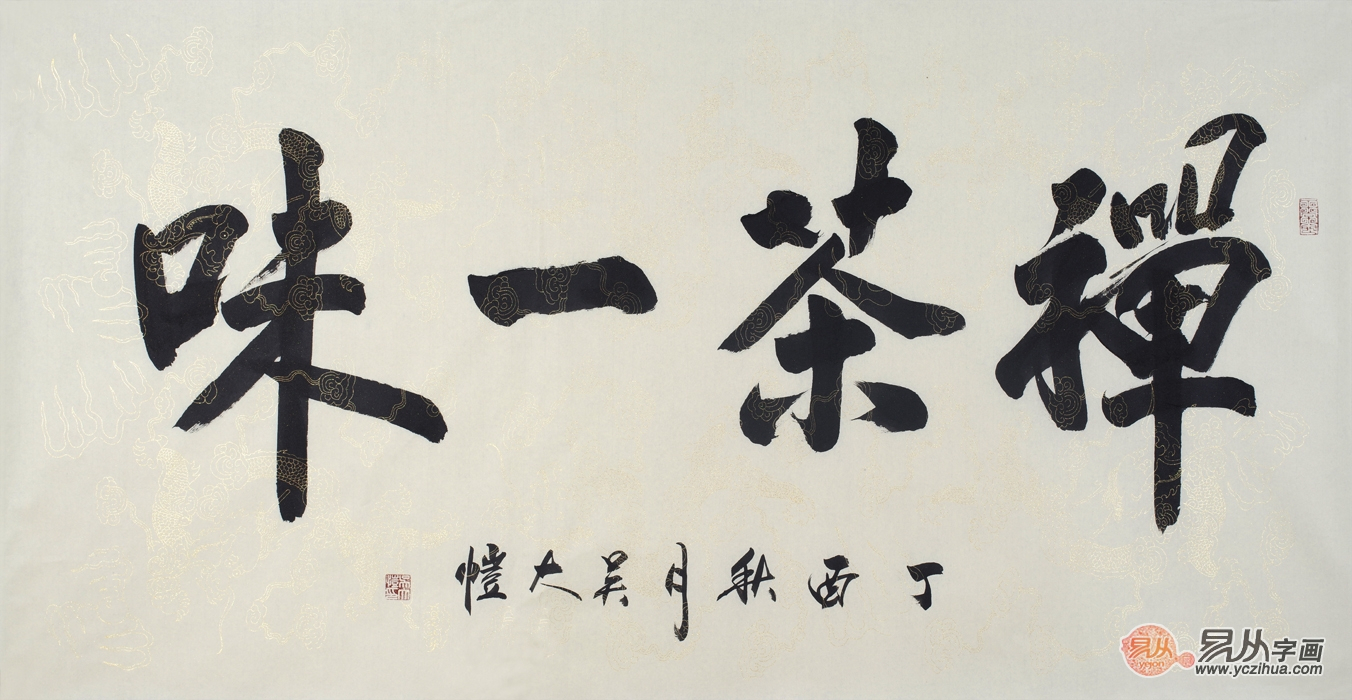 禪茶一味
丁酉秋月吴大愷
易从
yejon
易从字画
www.yczihua.com